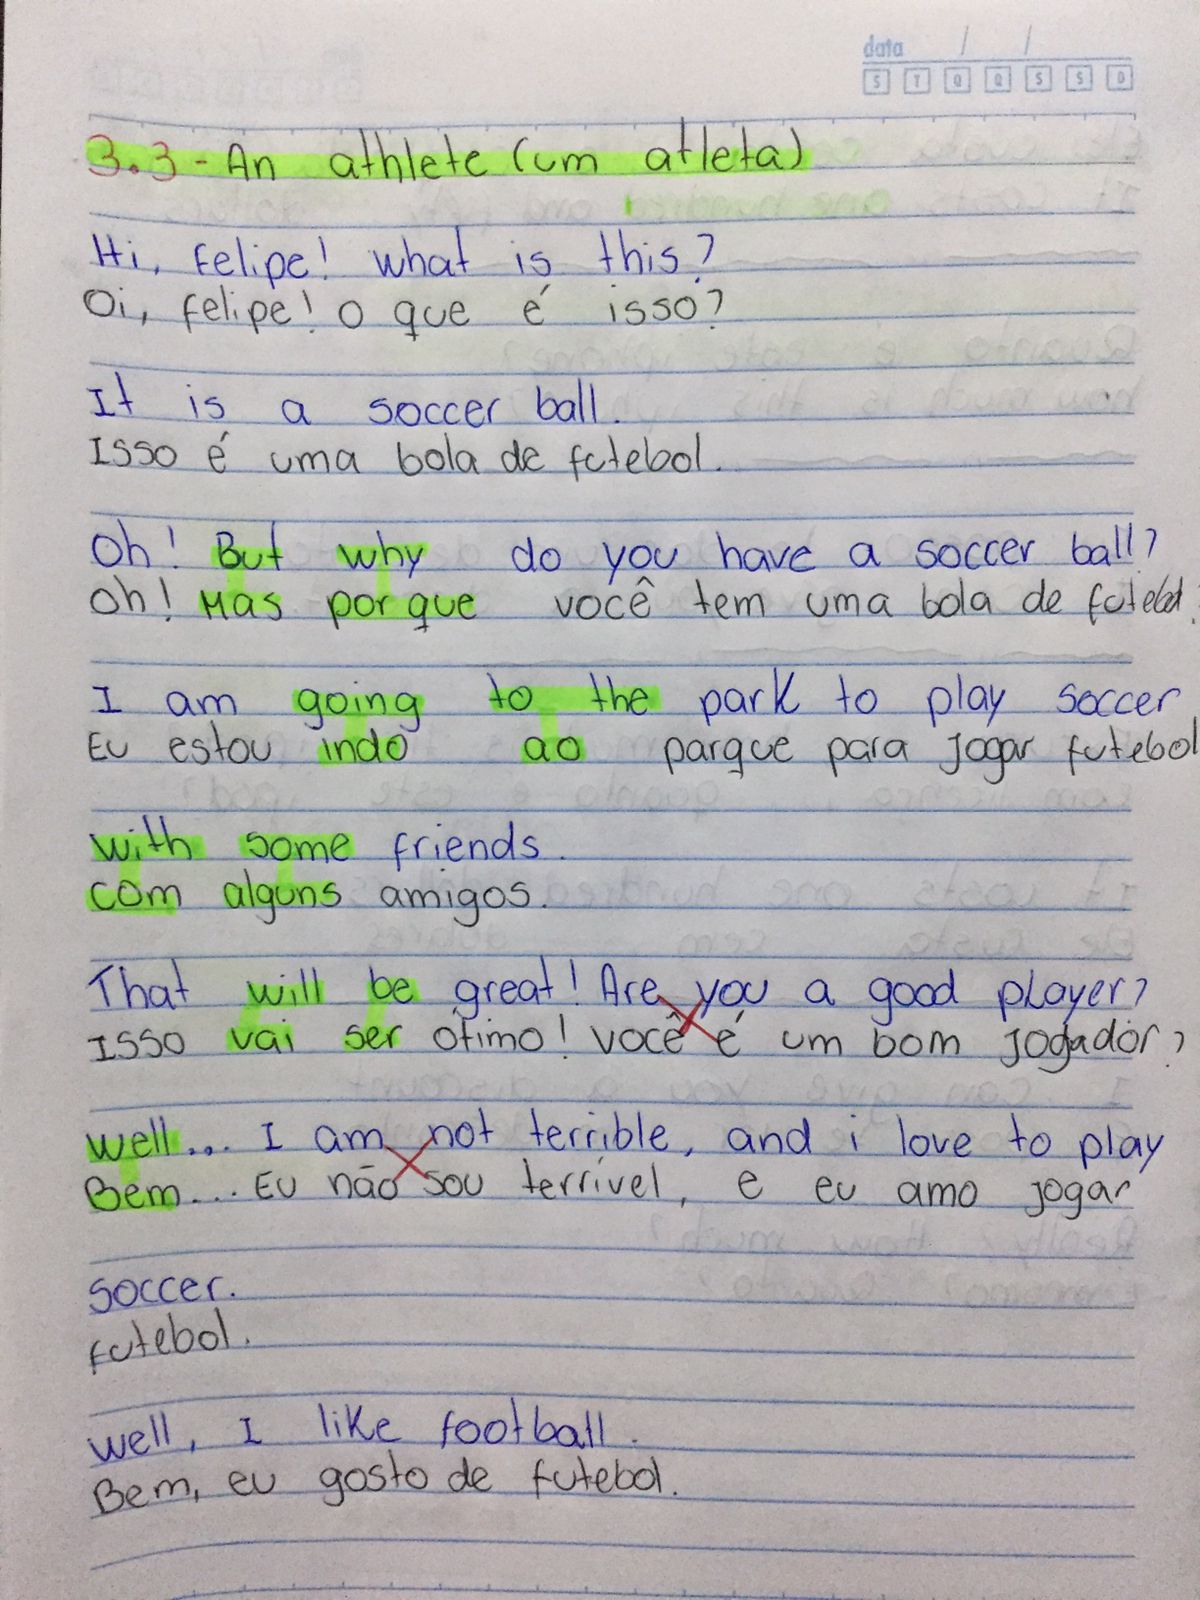 data / /
S T Q Q S S D
3.3 - An athlete (um atleta)
Hi, Felipe! what is this?
Oi, Felipe! O que é isso?
It is a soccer ball.
Isso é uma bola de futebol.
Oh! But why do you have a soccer ball?
Oh! Mas por que você tem uma bola de futebol.
I am going to the park to play soccer
Eu estou indo ao parque para jogar futebol
with some friends.
com alguns amigos.
That will be great! Are you a good player?
Isso vai ser ótimo! você é um bom jogador?
well... I am not terrible, and i love to play
Bem... Eu não sou terrível, e eu amo jogar
soccer.
futebol.
well, I like football.
Bem, eu gosto de futebol.